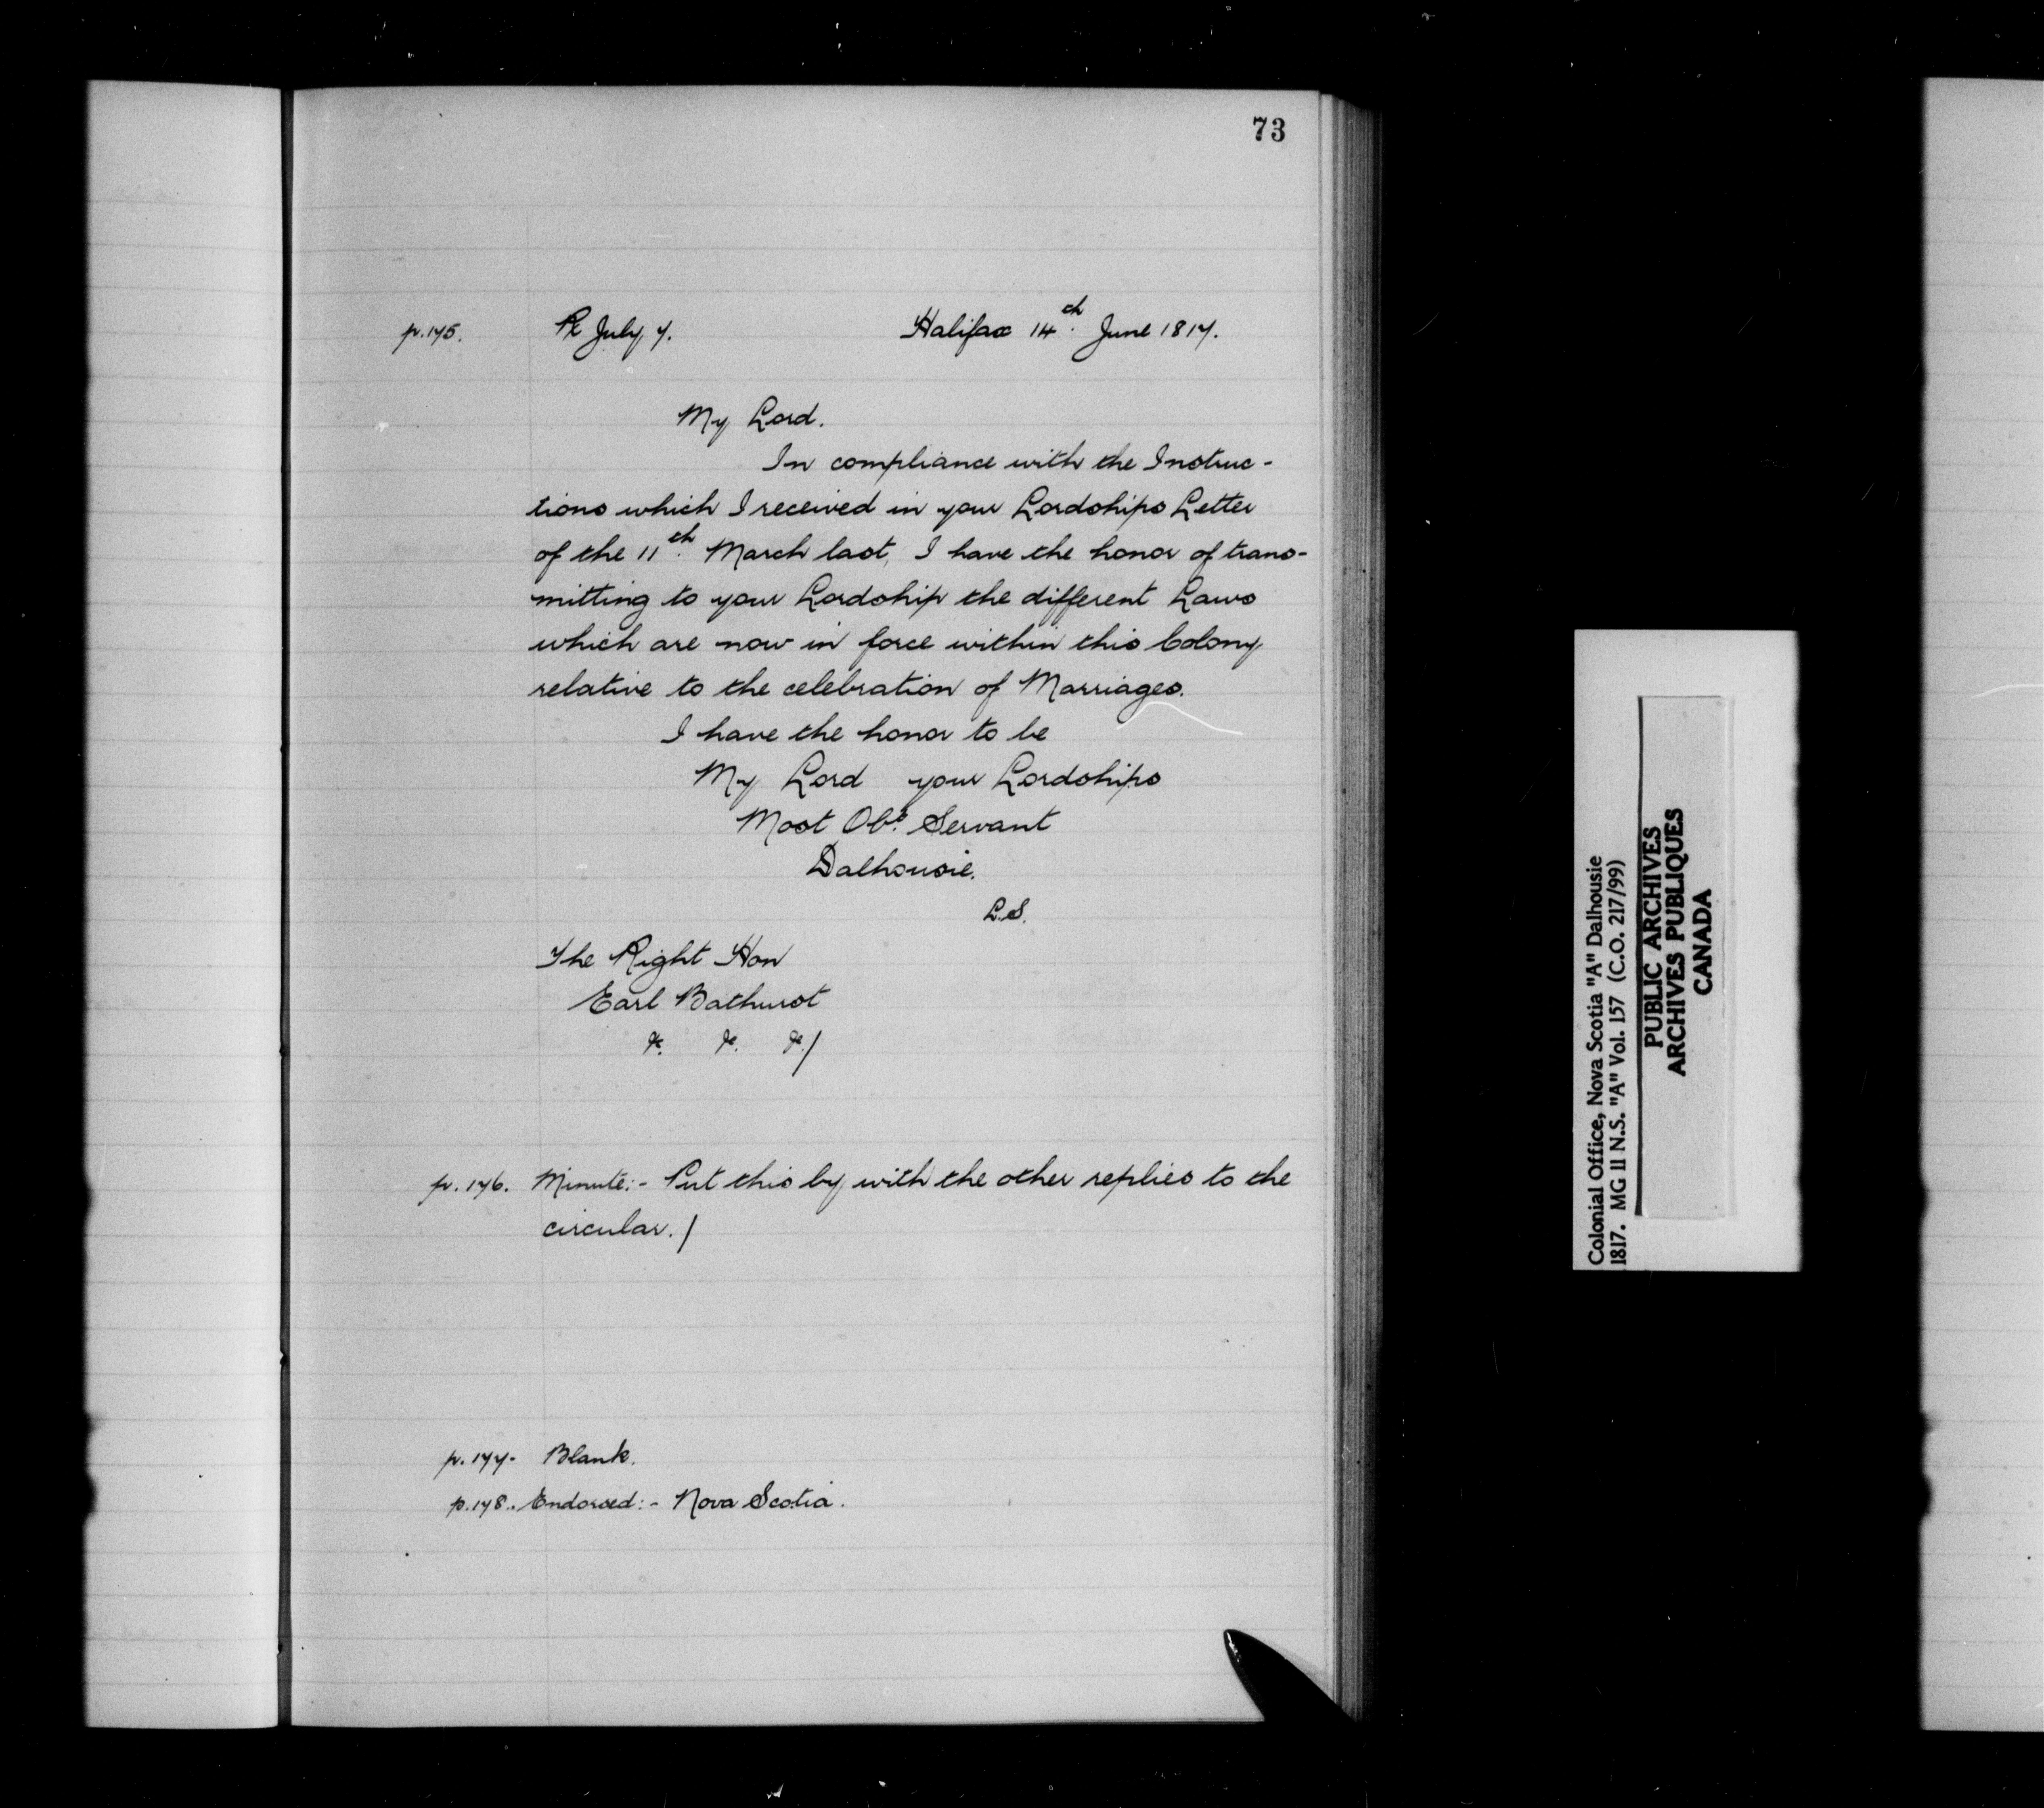 73
p.175. Rx July 7. Halifax 14th. June 1817.
My Lord.
In compliance with the Instruc-
tions which I received in your Lordships Letter
of the 11th. March last, I have the honor of trans-
mitting to your Lordship the different Laws
which are now in force within this Colony
relative to the celebration of Marriages.
I have the honor to be
My Lord your Lordships
Most Obt. Servant
Dalhousie.
L.S.
The Right Hon
Earl Bathurst
&c. &c. &c./
p.176. Minute:- Put this by with the other replies to the
circular./
p.177- Blank.
p.178.. Endorsed:- Nova Scotia.
Colonial Office, Nova Scotia "A" Dalhousie
1817. MG 11 N.S. "A" Vol. 157 (C.O. 217/99)
PUBLIC ARCHIVES
ARCHIVES PUBLIQUES
CANADA